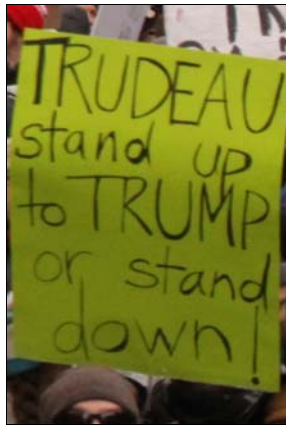 TRUDEAU
stand up
to TRUMP
or stand
down!